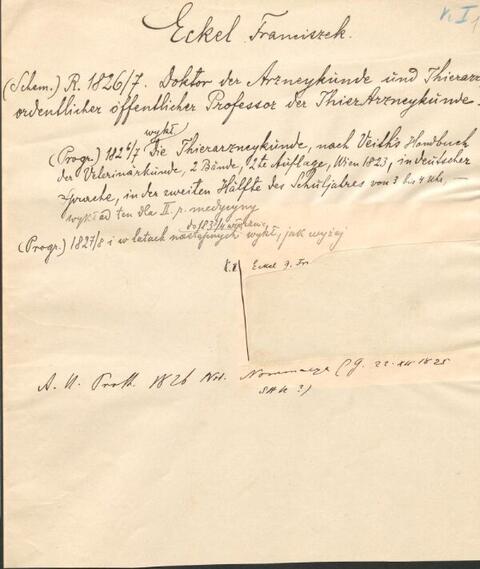 k. I 1
Eckel Franciszek.
(Schem.) R. 1826/7. Doktor der Arzneykunde und Thierarz
ordentlicher öffentlicher Professor der ThierArzneykunde.
wykł.
(Progr.) 1826/7 Die Thierarzneykunde, nach Veith's Handbuch
der Veterinärkunde, 2 Bände, 2te Auflage, Wien 1823, in deutscher
Sprache, in der zweiten Hälfte des Schuljahres von 3 bis 4 Uhr, —
wykład ten dla II. r. medycyny
do 1833/4 włącznie
(Progr.) 1827/8 i w latach następnych wykł, jak wyżej
Eckel J. Fr.
A. U. Prot. 1826 22. XII 1825